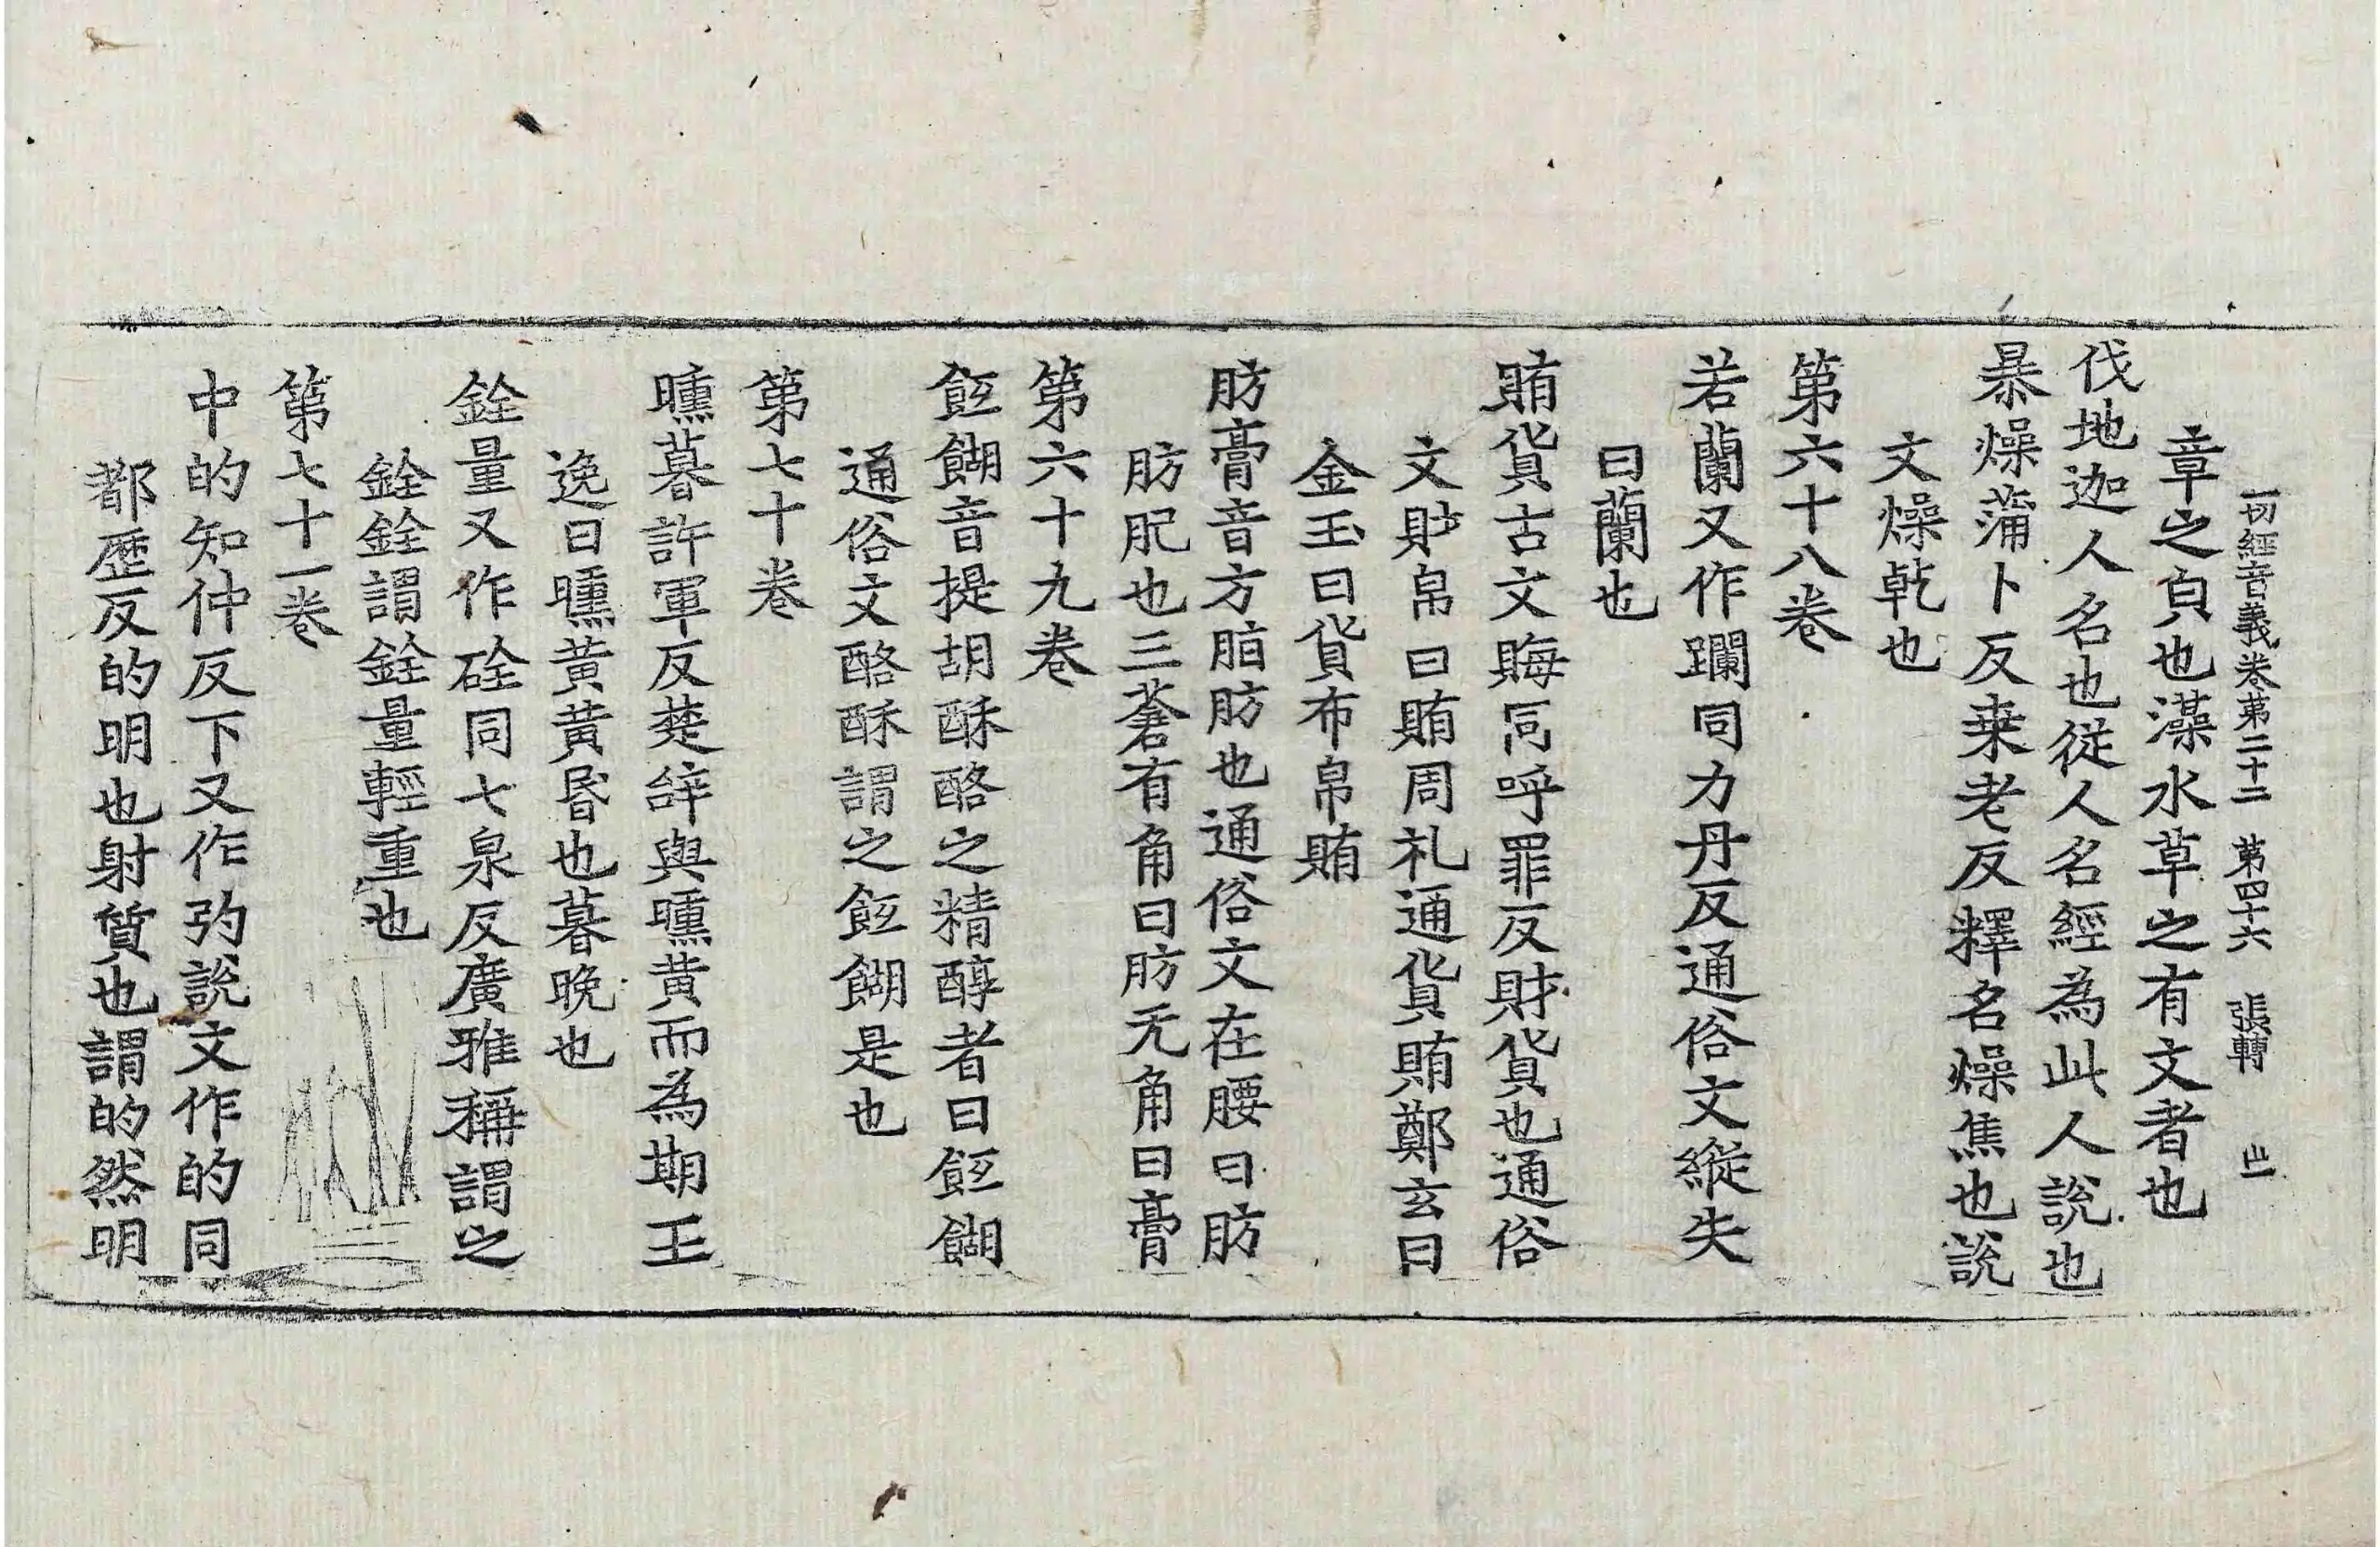 一切經音義卷第二十二 第四十六 張轉
章之㒵也藻水草之有文者也
伐地迦人名也從人名經為此人說也
暴燥蒲卜反桒老反釋名燥焦也說
文燥乾也
第六十八卷
若蘭又作躝同力丹反通俗文縱失
曰蘭也
賄貨古文賄同呼罪反財貨也通俗
文財帛曰賄周礼通貨賄鄭玄曰
金玉曰貨布帛曰賄
肪膏音方脂肪也通俗文在腰曰肪
肪肥也三蒼有角曰肪无角曰膏
第六十九卷
䬫餬音提胡酥酪之精醇者曰䬫餬
通俗文酪酥謂之䬫餬是也
第七十卷
曛暮許軍反楚辞與曛黄而為期王
逸曰曛黄黄昬也暮晚也
銓量又作硂同七泉反廣雅稱謂之
銓銓謂銓量輕重也
第七十一卷
中的知仲反下又作𢏗說文作的同
都歷反的明也射質也謂的然明